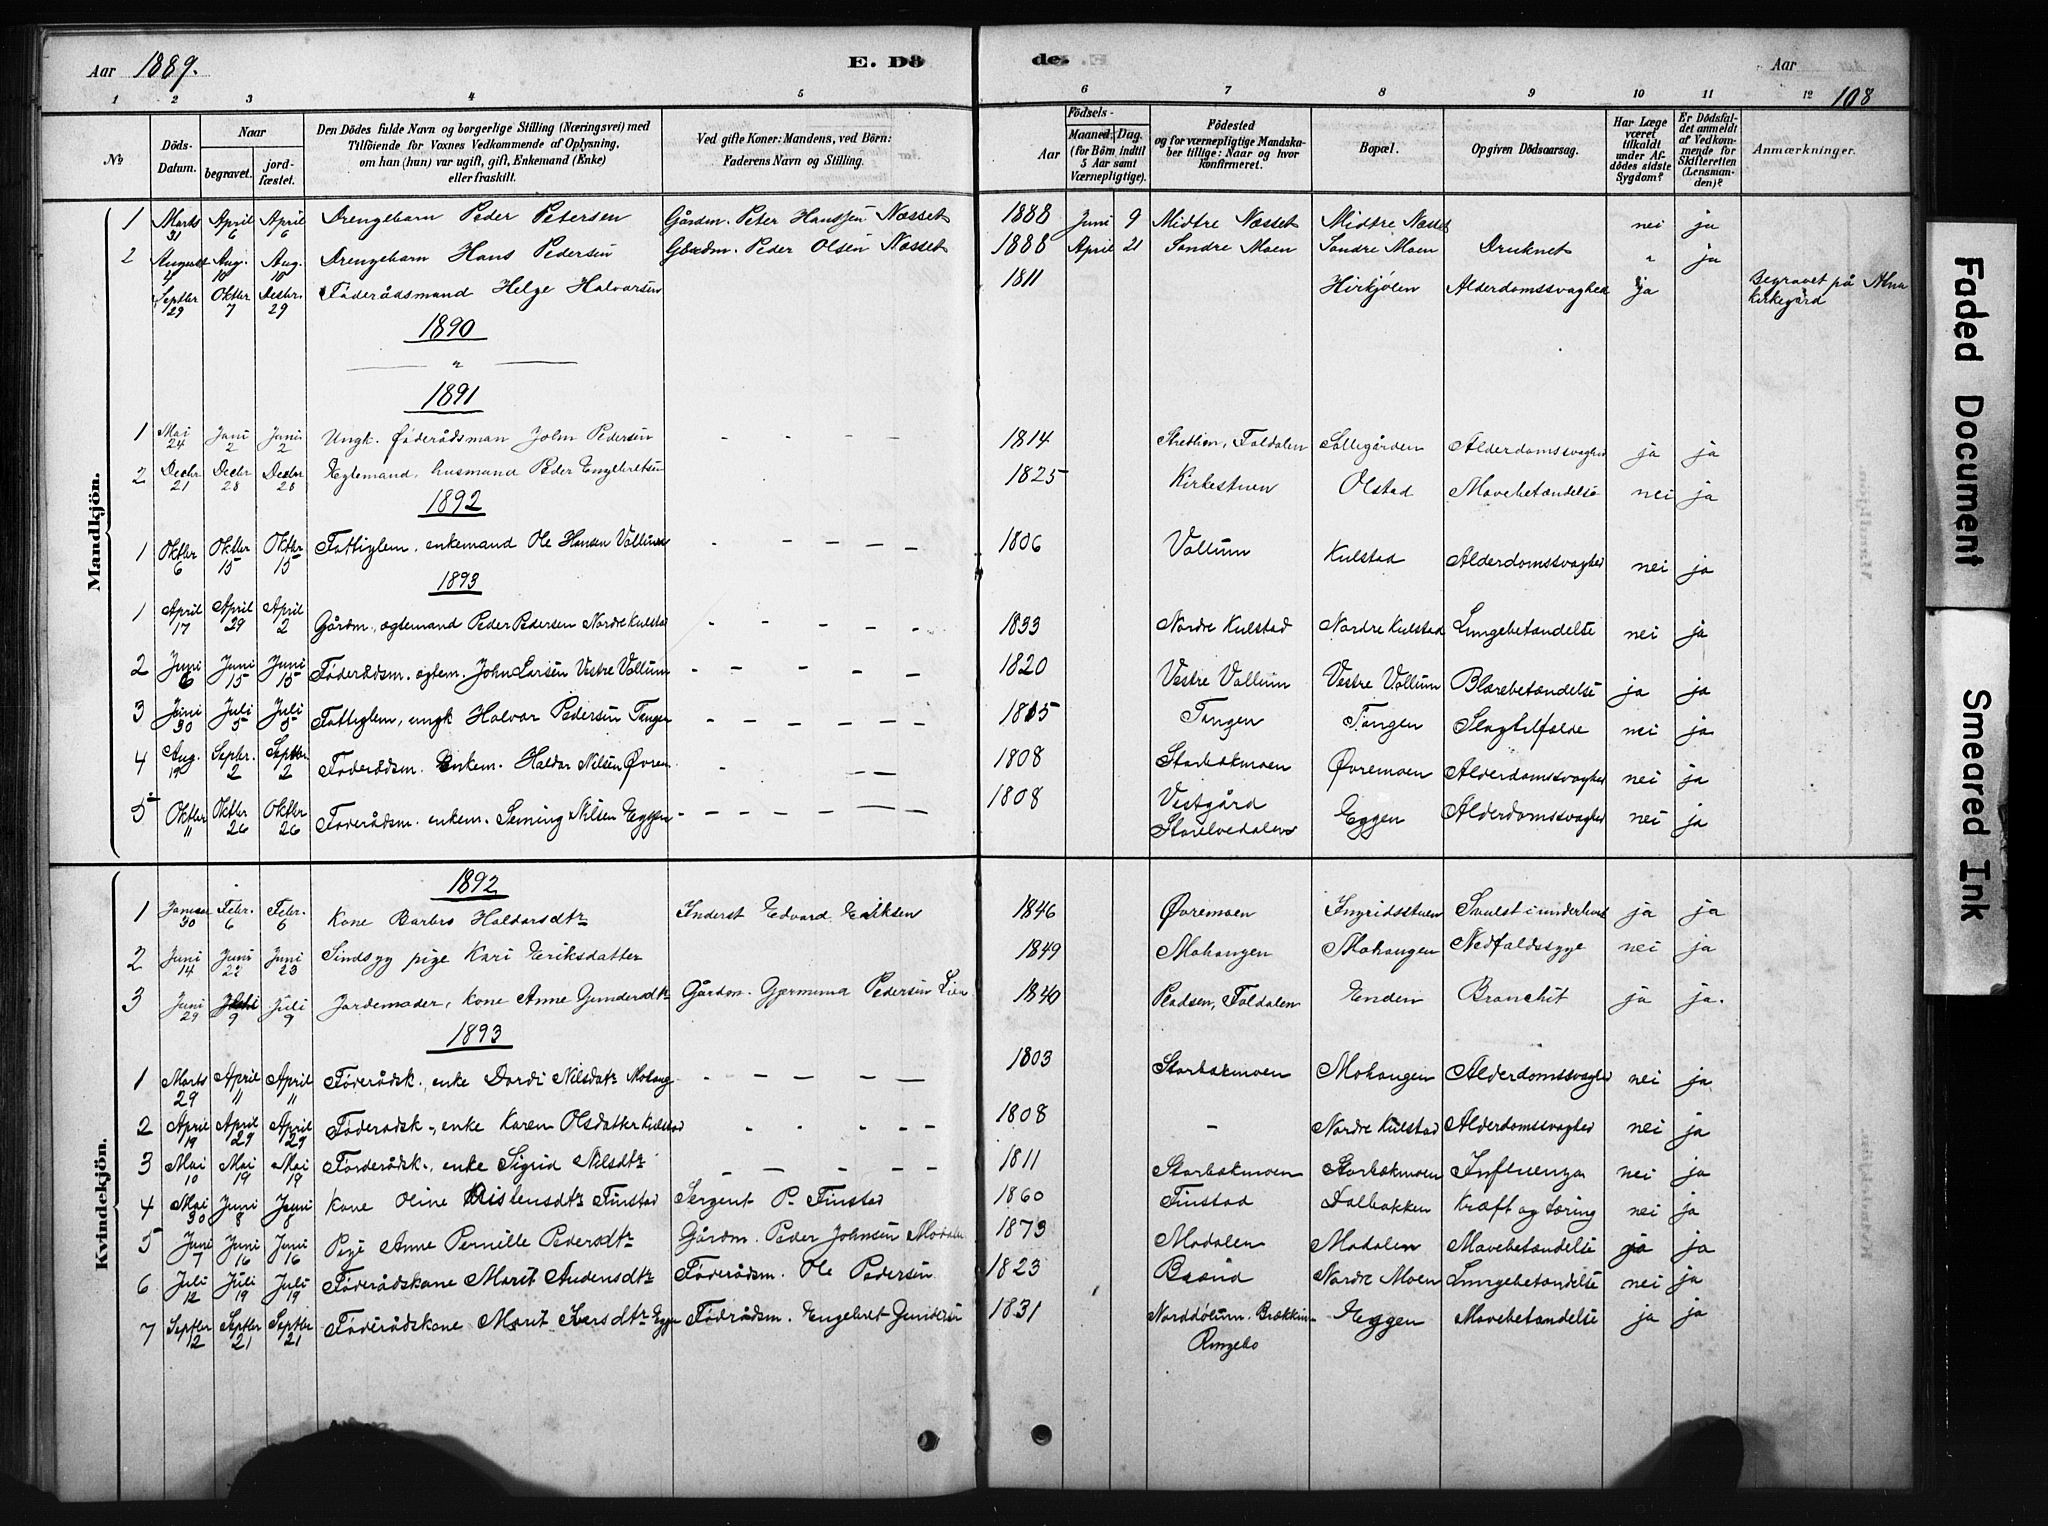 Aar 1889. E. Dö de. Aar
108
1 2 3 4 5 6 7 8 9 10 11 12
No
Döds-Datum.
Naar begravet. jordfæstet.
Den Dödes fulde Navn og borgerlige Stilling (Næringsvei) med Tilföiende for Voxnes Vedkommende af Oplysning, om han (hun) var ugift, gift, Enkemand (Enke) eller fraskilt.
Ved gifte Koner: Mandens, ved Börn: Faderens Navn og Stilling.
Födsels- Aar Maaned. Dag. (for Börn indtil 5 Aar samt Værnepligtige).
Födested og for værnepligtige Mandskaber tillige: Naar og hvor konfirmeret.
Bopæl.
Opgiven Dödsaarsag.
Har Læge været tilkaldt under Afdödes sidste Sygdom?
Er Dödsfaldet anmeldt af Vedkommende for Skifteretten (Lensmanden)?
Anmærkninger.
Mandkjön.
1 Marts 31 April 6 April 6 Drengebarn Peder Petersen Gårdm. Peter Hanssen Næsset 1888 Juni 9 Midtre Næsset Midtre Næsset nei ja
2 August 4 Aug. 10 Aug. 10 Drengebarn Hans Pedersen Gårdm. Peder Olsen Næsset 1888 April 21 Söndre Moen Söndre Moen Druknet " ja
Septbr 29 Oktbr 7 Decbr. 29 Föderådsmand Helge Halvorsen 1811 Hirkjölen Alderdomssvaghed ja Begravet på kirkegård
1890
"
1891
1 Mai 24 Juni 2 Juni 2 Ungk. föderådsman John Pedersen - - - - 1814 Foldalen Sollegården Alderdomssvaghed ja ja
2 Decbr 21 Decbr 28 Decbr 28 Egtemand, husmand Peder Engebretsen 1825 Kirkestuen Olstad Mavebetændelse nei ja
1892
1 Oktbr 6 Oktbr 15 Oktbr 15 Fattiglem, enkemand Ole Hansen Vollum - - - - - 1806 Vollum Kulstad Alderdomssvaghed nei ja
1893
1 April 17 April 29 April 2 Gårdm., egtemand Peder Pedersen Nordre Kulstad - - - - - 1833 Nordre Kulstad Nordre Kulstad Lungebetændelse nei ja
2 Juni 6 Juni 15 Juni 15 Föderådsm. egtem. John Larsen Vestre Vollum - - - - - 1820 Vestre Vollum Vestre Vollum Blærebetændelse ja ja
3 Juni 30 Juli 5 Juli 5 Fattiglem, ungk Halvor Pedersen Tangen - - - - - - 1815 Tangen Tangen Slagtilfælde nei ja
4 Aug. 19 Septbr. 2 Septbr 2 Föderådsm. Enkem. Haldor Nilsen Övrem. - - - 1808 Storbækmoen Övremoen Alderdomssvaghed nei ja
5 Oktbr 11 Oktbr 26 Oktbr 26 Föderådsm. enkem. Simen Nilsen Eggen - - - - - - 1808 Vestgård Storelvedalen Eggen Alderdomssvaghed nei ja
Kvindekjön.
1892
1 Januar 30 Febr. 6 Febr. 6 Kone Barbro Haldorsdtr Inderst Edvard Eriksen 1846 Övremoen Ingridsstuen Svulst i underlivet ja ja
2 Juni 14 Juni 22 Juni 23 Sindssyg pige Kari Eriksdatter 1849 Mohaugen Mohaugen Nedfaldssyge nei ja
3 Juni 29 Juli 9 Juli 9 Jordemoder, kone Anne Gundersdtr Gårdm. Gjermund Pedersen Lien 1840 Pladsen, Foldalen Enden Bronchit ja ja.
1893
1 Marts 29 April 11 April 11 Föderådsk., enke Dordi Nilsdatr Mohaug - - - - - 1803 Storbækmoen Mohaugen Alderdomssvaghed nei ja
2 April 19 April 29 April 29 Föderådsk., enke Karen Olsdatter Kulstad - - - - - 1808 - Nordre Kulstad Alderdomssvaghed nei ja
3 Mai 10 Mai 19 Mai 19 Föderådsk., enke Sigrid Nilsdtr - - - - - 1811 Storbækmoen Storbækmoen Influenza nei ja
4 Mai 30 Juni 8 Juni 8 Kone Oline Kristensdtr Finstad Sergent P. Finstad 1860 Finstad Dalbakken Kræft og tæring nei ja
5 Juni 7 Juni 16 Juni 16 Pige Anne Pernille Pedersdtr Gårdm. Peder Johnsen Modalen 1873 Modalen Modalen Mavebetændelse ja ja
6 Juli 12 Juli 19 Juli 19 Föderådskone Marit Andersdtr Föderådsm. Ole Pedersen 1823 Baand Nordre Moen Lungebetændelse nei ja
7 Septbr 12 Septbr 21 Septbr 21 Föderådskone Marit Iversdtr Eggen Födrådsm. Engebret Gundersen 1831 Brækken Ringebo Eggen Mavebetændelse ja ja
Faded Document Smeared Ink